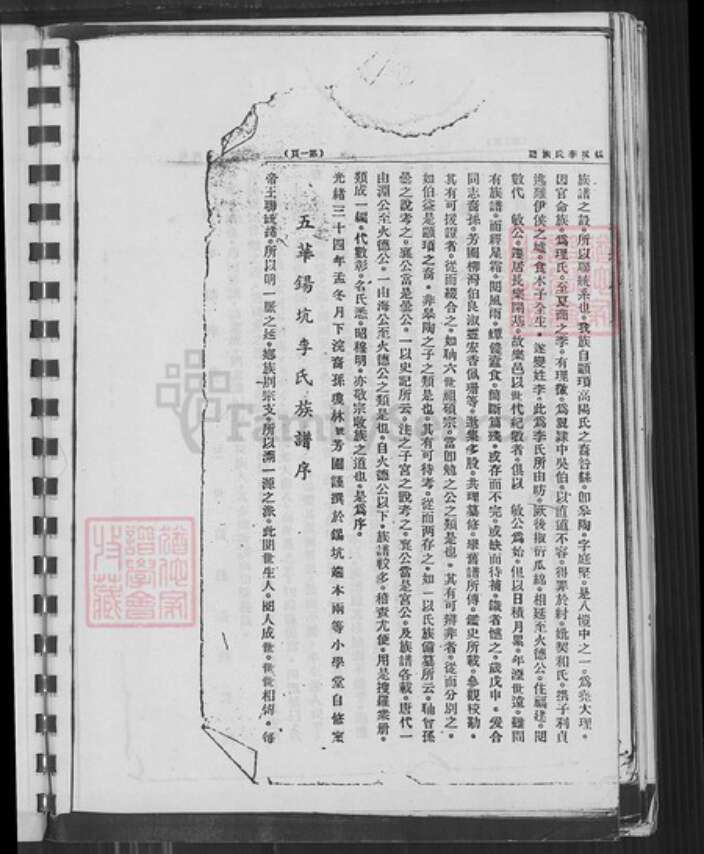 錫坑李氏族譜
（第一頁）
族譜之設。所以聯統系也。我族自顓頊高陽氏之裔咎繇。卽皋陶。字庭堅。是八愷中之一。爲堯大理。
因官命族。爲理氏。至夏商之季。有理徵。爲翼隸中吳伯。以直道不容。得罪於紂。娥契和氏。携子利貞
逃難伊侯之墟。食木子全生。遂變姓李。此爲李氏所由昉。厥後椒衍瓜綿。相延至火德公。住福建。閱
數代　敏公。遷居長樂開基。故樂邑以世代紀數者。俱以　敏公爲始。但以日積月累。年湮世遠。雖間
有族譜。而經星霜。閱風雨。蟫殘蠹食。簡斷篇殘。或存而不完。或缺而待補。識者憾之。歲戊申。爰合
同志裔孫。芳園柳灣伯良淑靈宏香佩珊等。邀集多股。共理纂修。舉舊譜所傳。鑑史所載。參觀校勘。
其有可援證者。從而綴合之。如聃六世祖碩宗。當卽勉之公之類是也。其有可辯非者。從而分別之。
如伯益是顓頊之裔。非皋陶之子之類是也。其有可待考。從而兩存之。如一以氏族備墓所云。聃智孫
曇之說考之。襄公當是曇公。一以史記所云。注之子宮之說考之。襄公當是宮公。及族譜各載。唐代一
由淵公至火德公。一由海公至火德公之類是也。自火德公以下。族譜較多。稽查尤便。用是搜羅衆册。
類成一編。代數彰。名氏悉。昭穆明。亦敬宗收族之道也。是爲序。
光緒三十四年孟冬月下浣裔孫瓊林號芳園謹撰於錫坑端本兩等小學堂自修室
五華錫坑李氏族譜序
帝王聯統緒。所以明一脈之延。鄉族別宗支。所以溯一源之派。此間世生人。閱人成世。世世相傳。每